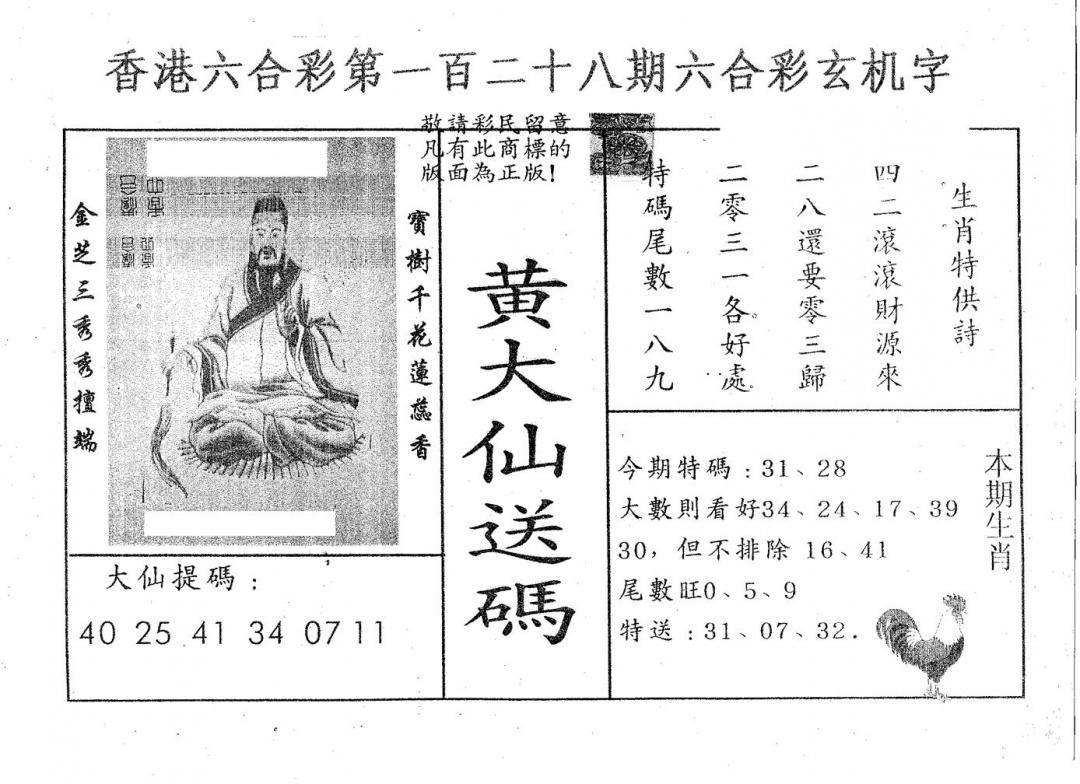 香港六合彩第一百二十八期六合彩玄机字
敬請彩民留意
凡有此商標的
版面為正版！
寶樹千花蓮蕊香
金芝三秀秀擅端
黄大仙送碼
大仙提碼：
40 25 41 34 07 11
生肖特供詩
四二滾滾財源來
二八還要零三歸
二零三一各好處
特碼尾數一八九
本期生肖
今期特碼：31、28
大數則看好34、24、17、39
30，但不排除 16、41
尾數旺0、5、9
特送：31、07、32．